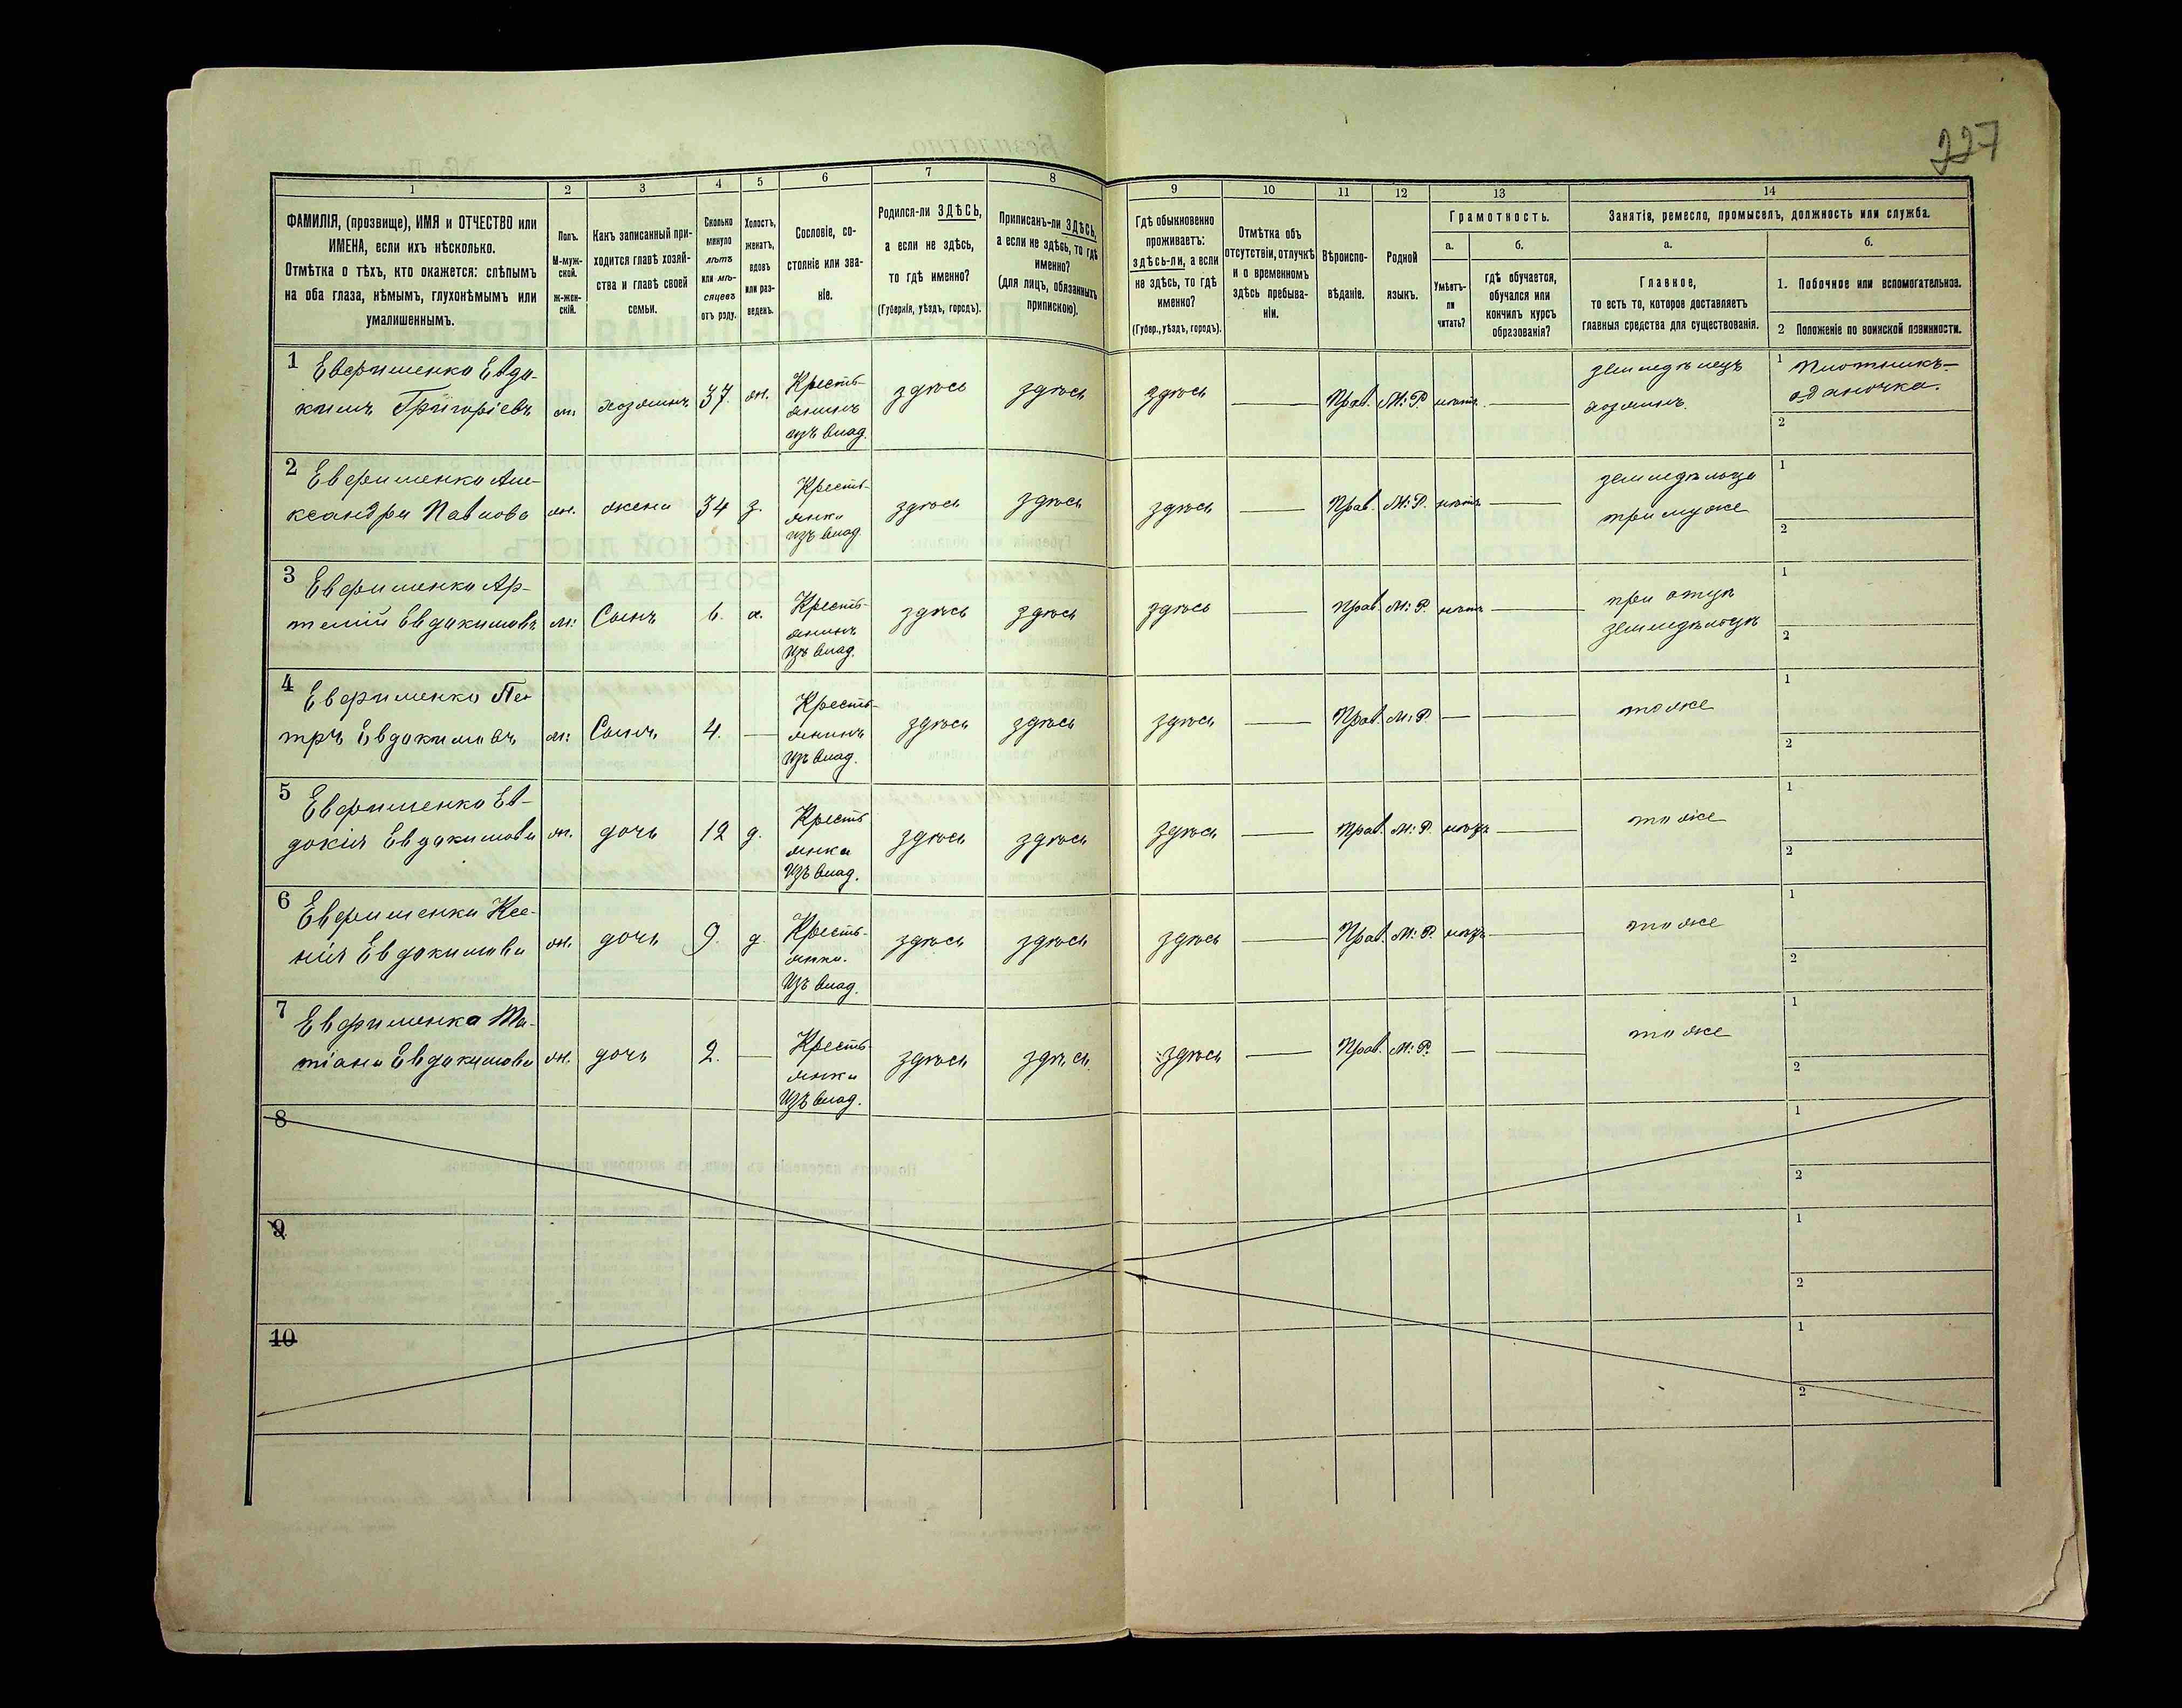 227
1 2 3 4 5 6 7 8 9 10 11 12 13 14
ФАМИЛІЯ, (прозвище), ИМЯ и ОТЧЕСТВО или
ИМЕНА, если ихъ нѣсколько.
Отмѣтка о тѣхъ, кто окажется: слѣпымъ
на оба глаза, нѣмымъ, глухонѣмымъ или
умалишеннымъ.
Полъ.
М-муж-
ской.
ж-жен-
скій.
Какъ записанный при-
ходится главѣ хозяй-
ства и главѣ своей
семьи.
Сколько
минуло
лѣтъ
или мѣ-
сяцевъ
отъ роду.
Холостъ,
женатъ,
вдовъ
или раз-
веденъ.
Сословіе, со-
стояніе или зва-
ніе.
Родился-ли ЗДѢСЬ,
а если не здѣсь,
то гдѣ именно?
(Губернія, уѣздъ, городъ).
Приписанъ-ли ЗДѢСЬ,
а если не здѣсь, то гдѣ
именно?
(для лицъ, обязанныхъ
припискою).
Гдѣ обыкновенно
проживаетъ:
здѣсь-ли, а если
не здѣсь, то гдѣ
именно?
(Губер., уѣздъ, городъ).
Отмѣтка объ
отсутствіи, отлучкѣ
и о временномъ
здѣсь пребыва-
ніи.
Вѣроиспо-
вѣданіе.
Родной
языкъ.
Грамотность.
а. б.
Умѣетъ-
ли
читать?
гдѣ обучается,
обучался или
кончилъ курсъ
образованія?
Занятіе, ремесло, промыселъ, должность или служба.
а. б.
Главное,
то есть то, которое доставляетъ
главныя средства для существованія.
1. Побочное или вспомогательное.
2 Положеніе по воинской повинности.
1 Евфименко Евдо-
кимъ Григорьевъ м. хозяинъ 37. ж. Кресть-
янинъ
изъ влад. здѣсь здѣсь здѣсь — Прав. М: Р. нѣтъ — земледѣлецъ
хозяинъ. 1 Плотникъ-
одиночка.
2
2 Евфименко Але-
ксандра Павлова ж. жена 34 з. Кресть-
янка
изъ влад. здѣсь здѣсь здѣсь — Прав. М: Р. нѣтъ — земледѣльца
при муже 1
2
3 Евфименко Ар-
темій Евдокимовъ м: Сынъ 6. х. Кресть-
янинъ
Изъ влад. здѣсь здѣсь здѣсь — Прав. М: Р. нѣтъ — при отцѣ
земледѣльцѣ 1
2
4 Евфименко Пе-
тръ Евдокимовъ м: Сынъ 4. — Кресть-
янинъ
Изъ влад. здѣсь здѣсь здѣсь — Прав. М: Р. — — тоже 1
2
5 Евфименко Ев-
докія Евдокимова ж. дочь 12 д. Кресть
янка
Изъ влад. здѣсь здѣсь здѣсь — Прав. М: Р. нѣтъ — тоже 1
2
6 Евфименко Ксе-
нія Евдокимова ж. дочь 9. д. Кресть-
янка.
Изъ влад. здѣсь здѣсь здѣсь — Прав. М: Р. нѣтъ — тоже 1
2
7 Евфименко Та-
тіана Евдокимова ж. дочь 2. — Кресть-
янка
Изъ влад. здѣсь здѣсь здѣсь — Прав. М: Р. — — тоже 1
2
8 1
2
9 1
2
10 1
2